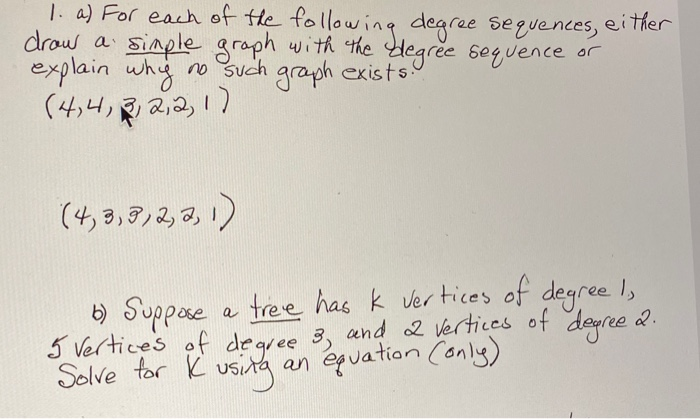 1. a) For each of the following degree sequences, either
draw a simple graph with the degree sequence or
explain why no such graph exists.
(4,4,3,2,2,1)
(4,3,3,2,2,1)
b) Suppose a tree has k vertices of degree 1,
5 vertices of degree 3, and 2 vertices of degree 2.
Solve for K using an equation (only)